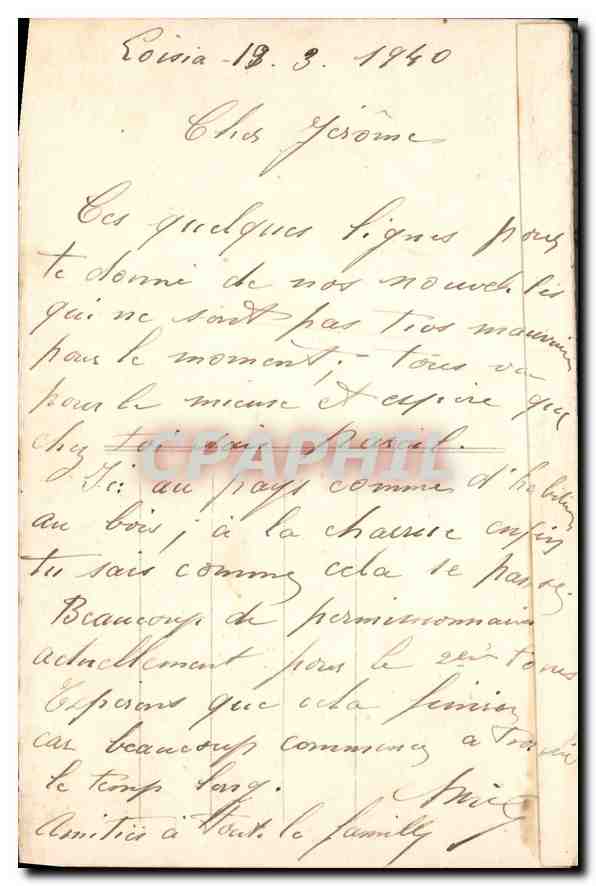 Loisia - 19. 3. 1940
Cher Jérôme
Ces quelques lignes pour
te donné de nos nouvelles
qui ne sont pas tros mauvaise
pour le moment; - tous va
pour le mieux et espère que
chez toi soit pareil.
CPAPHIL
Ici au pays comme d'habitude
au bois; à la charrue enfin
tu sais comme cela se passe.
Beaucoup de permissionnaires
actuellement pour le 2eme tours
Esperons que cela finira
car beaucoup commence a trouvé
le temp long.
Amitiés à toute la famille